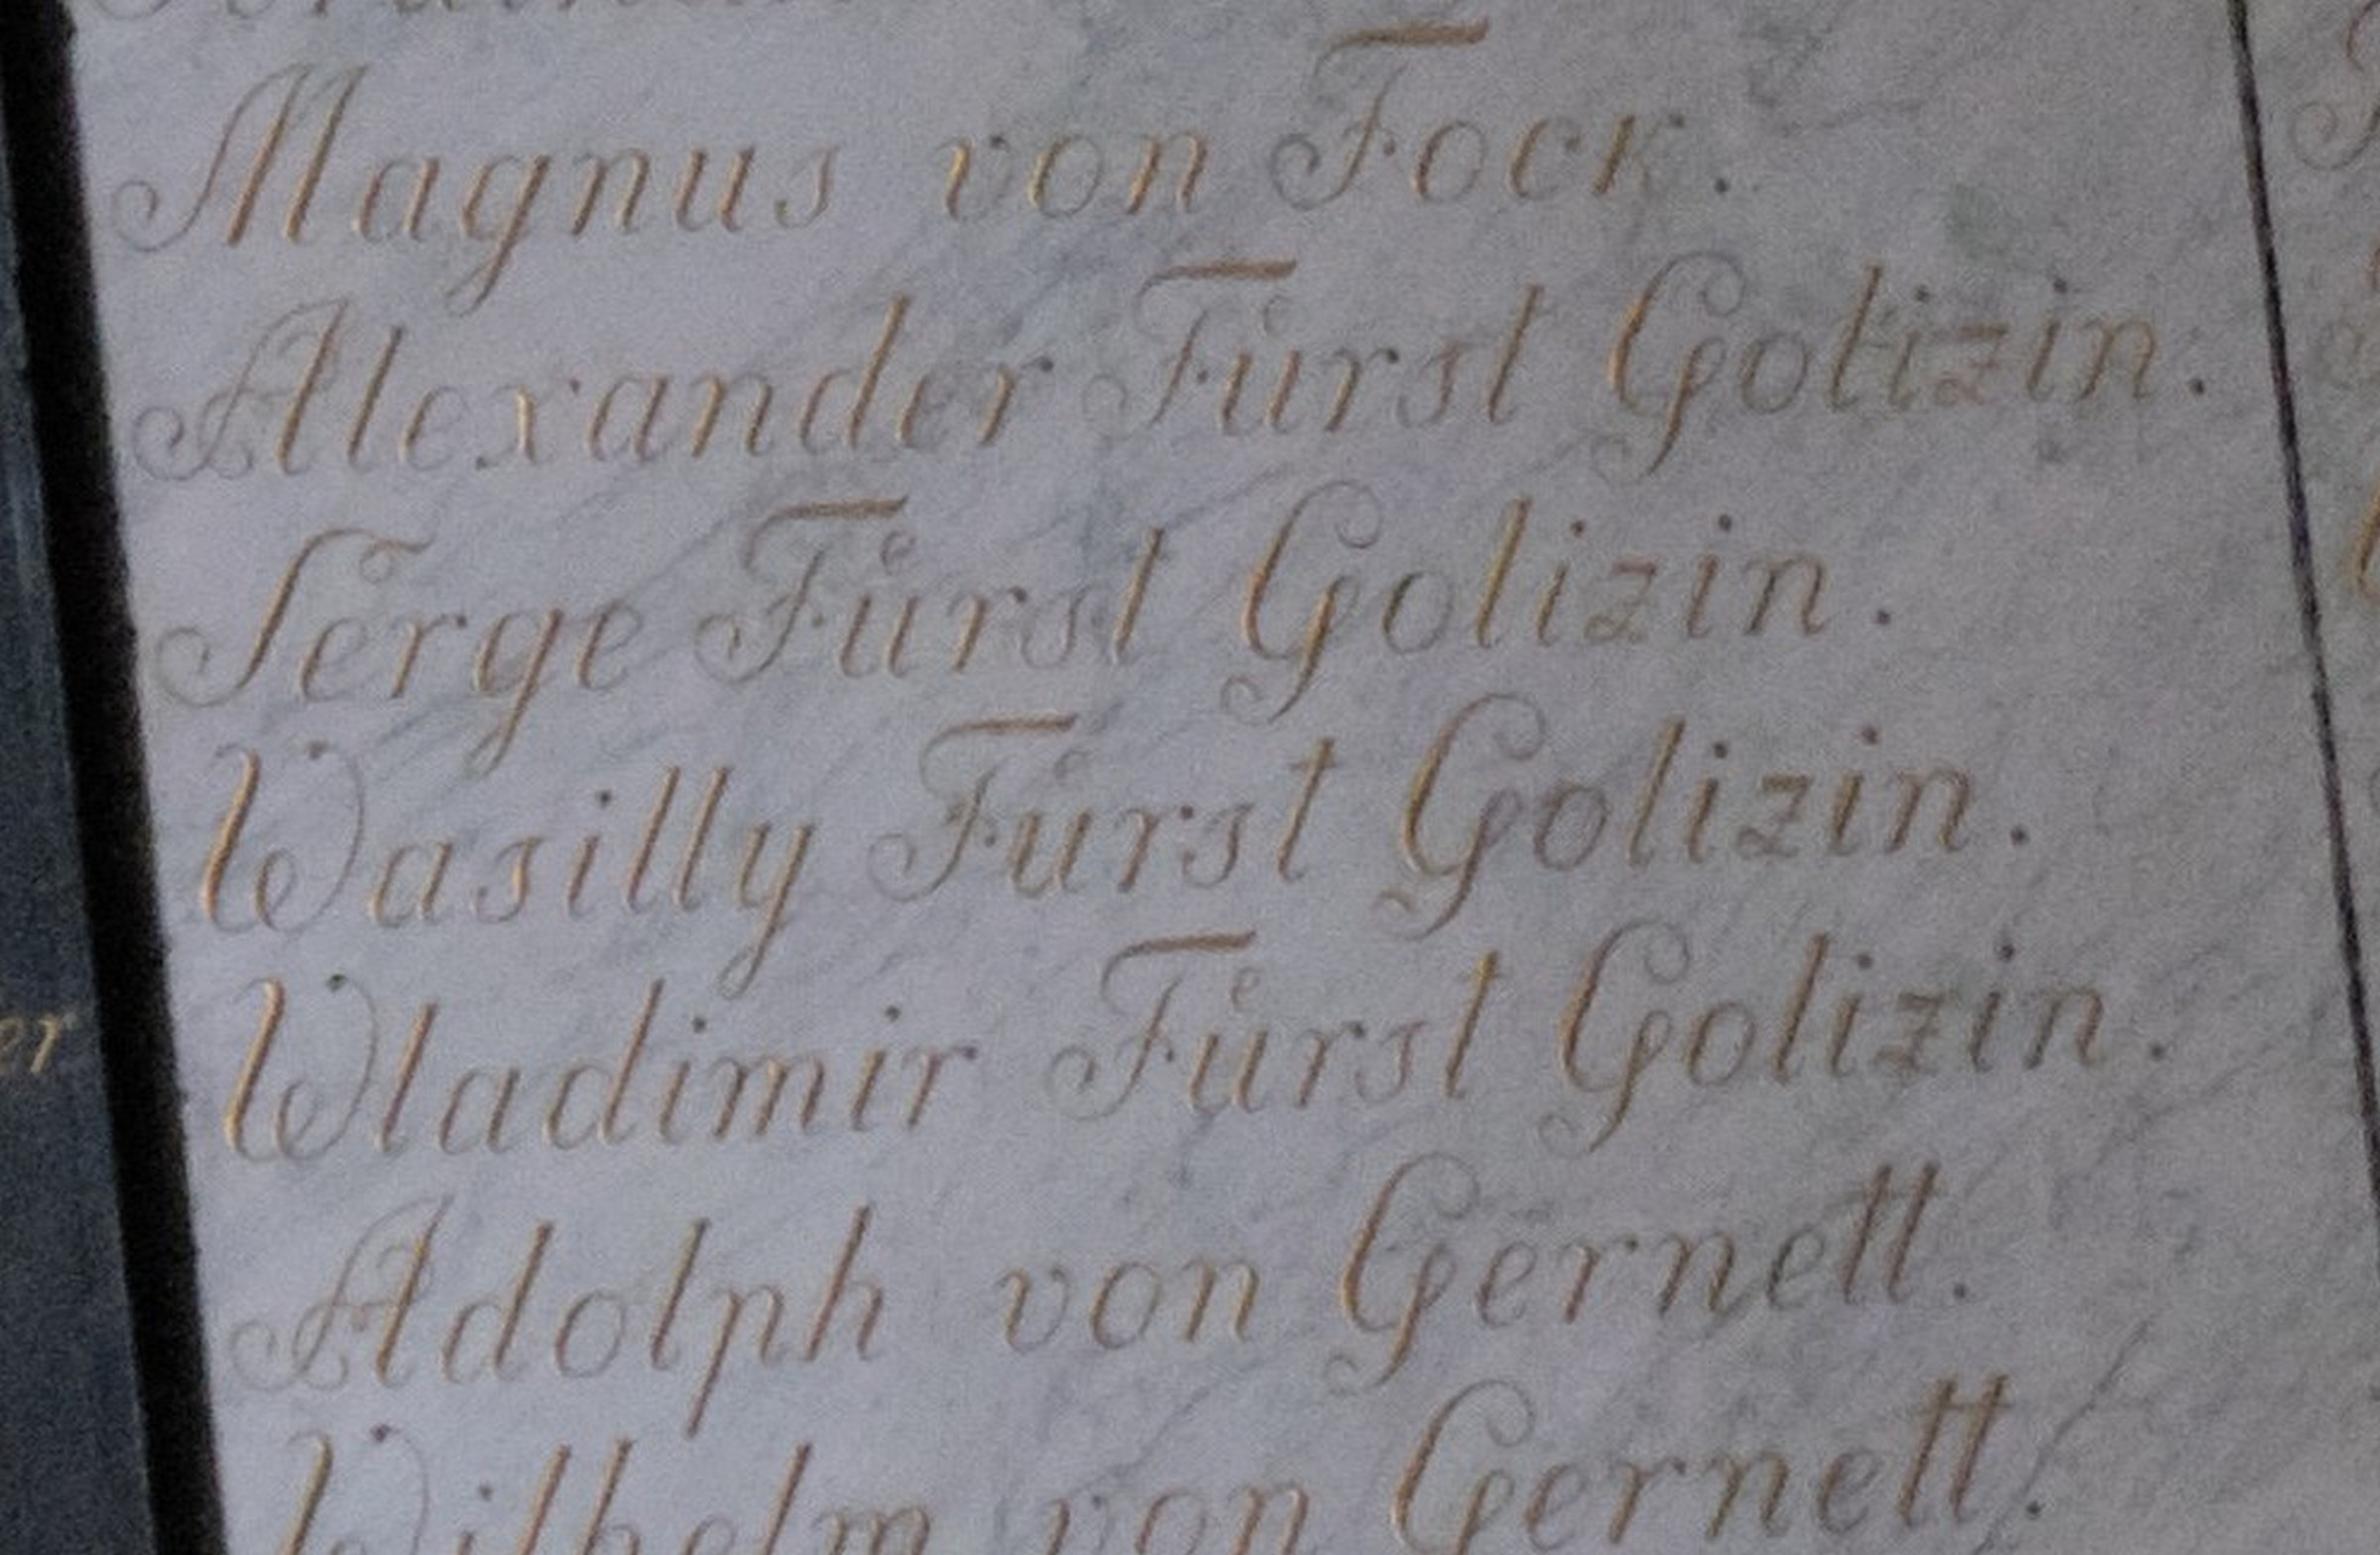 Magnus von Fock.
Alexander Fuͤrst Golizin.
Serge Fuͤrst Golizin.
Wasilly Fuͤrst Golizin.
Wladimir Fuͤrst Golizin.
Adolph von Gernett.
Wilhelm von Gernett.
er